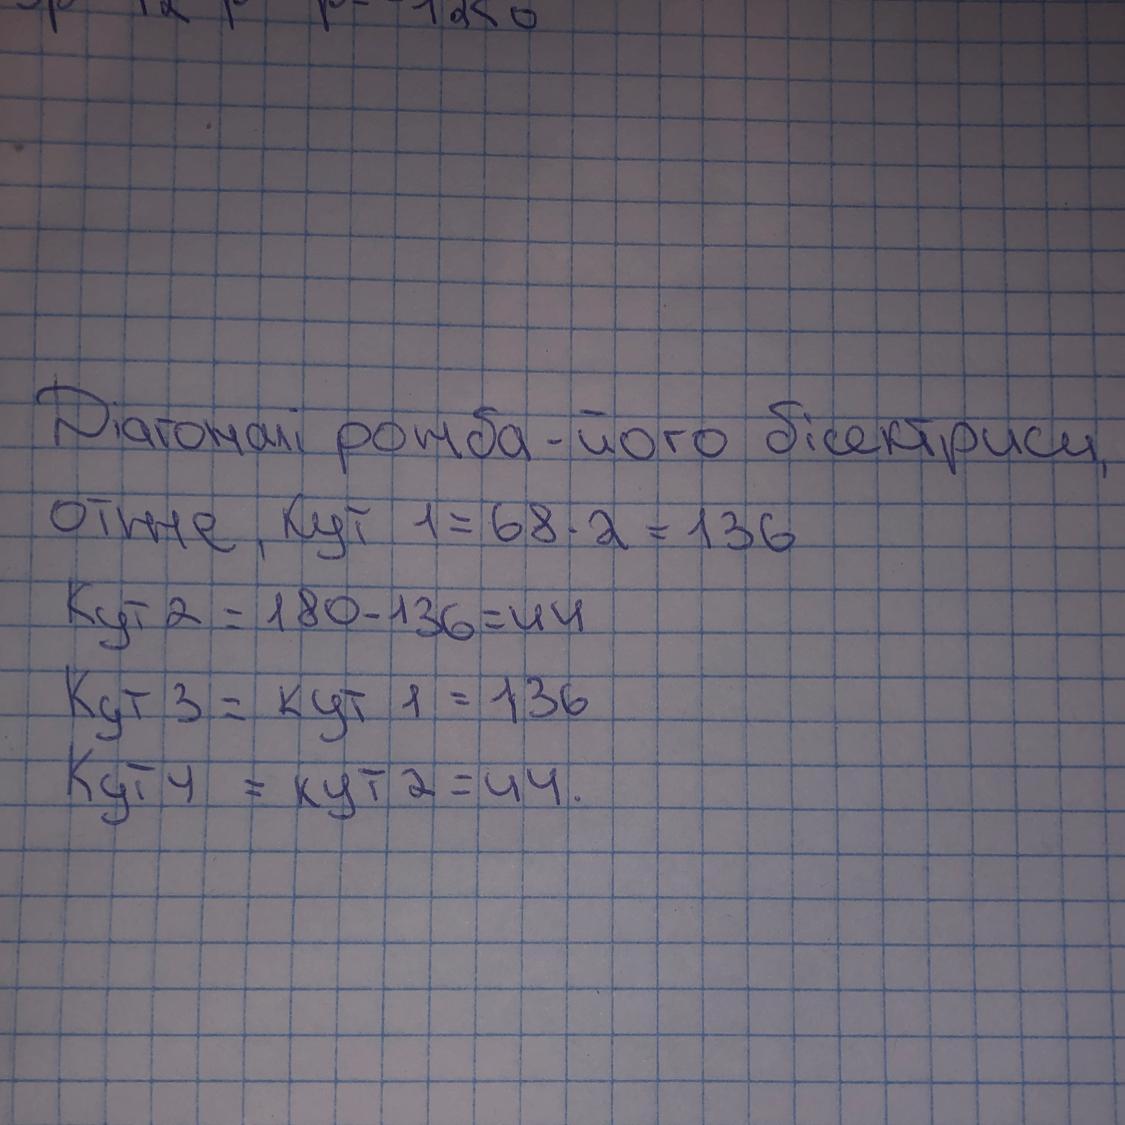 Діагоналі ромба - його бісектриси,
отже, кут 1 = 68 · 2 = 136
Кут 2 = 180 - 136 = 44
Кут 3 = кут 1 = 136
Кут 4 = кут 2 = 44.